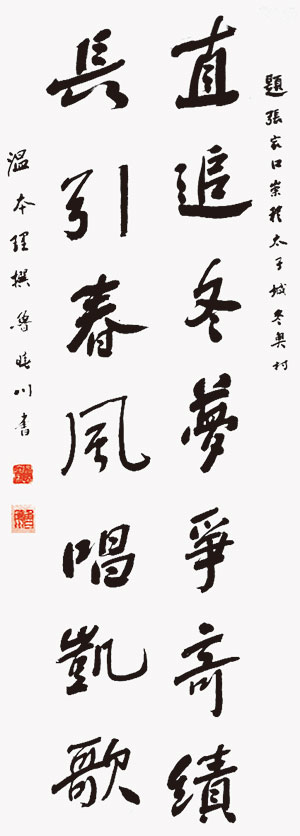 題張家口崇禮太子城冬奧村
直追冬夢爭奇績
長引春風唱凱歌
溫本理撰 曉川書